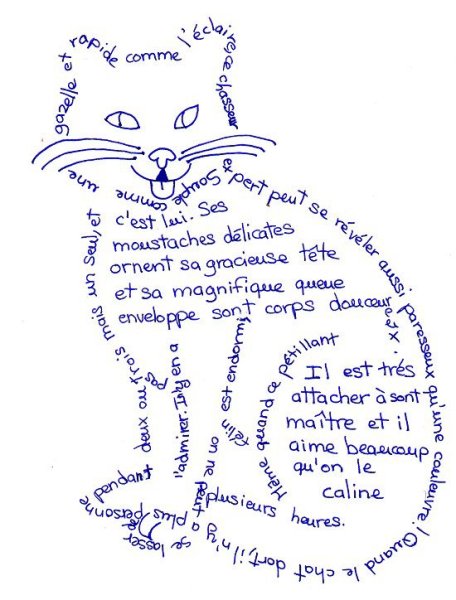 Souple comme une
gazelle et rapide comme l'éclaire, ce chasseur
expert peut se révéler aussi paresseux qu'une couleuvre! Quand le chat dort, il n'y a plus personne pendant
plusieurs heures.
Même quand ce pétillant
félin est endormi
on ne peut
se lasser de
l'admirer. Il n'y en a
pas
deux ou trois mais un seul, et
c'est lui. Ses
moustaches délicates
ornent sa gracieuse tête
et sa magnifique queue
enveloppe sont corps douceureux.
Il est trés
attacher à sont
maître et il
aime beaucoup
qu'on le
caline